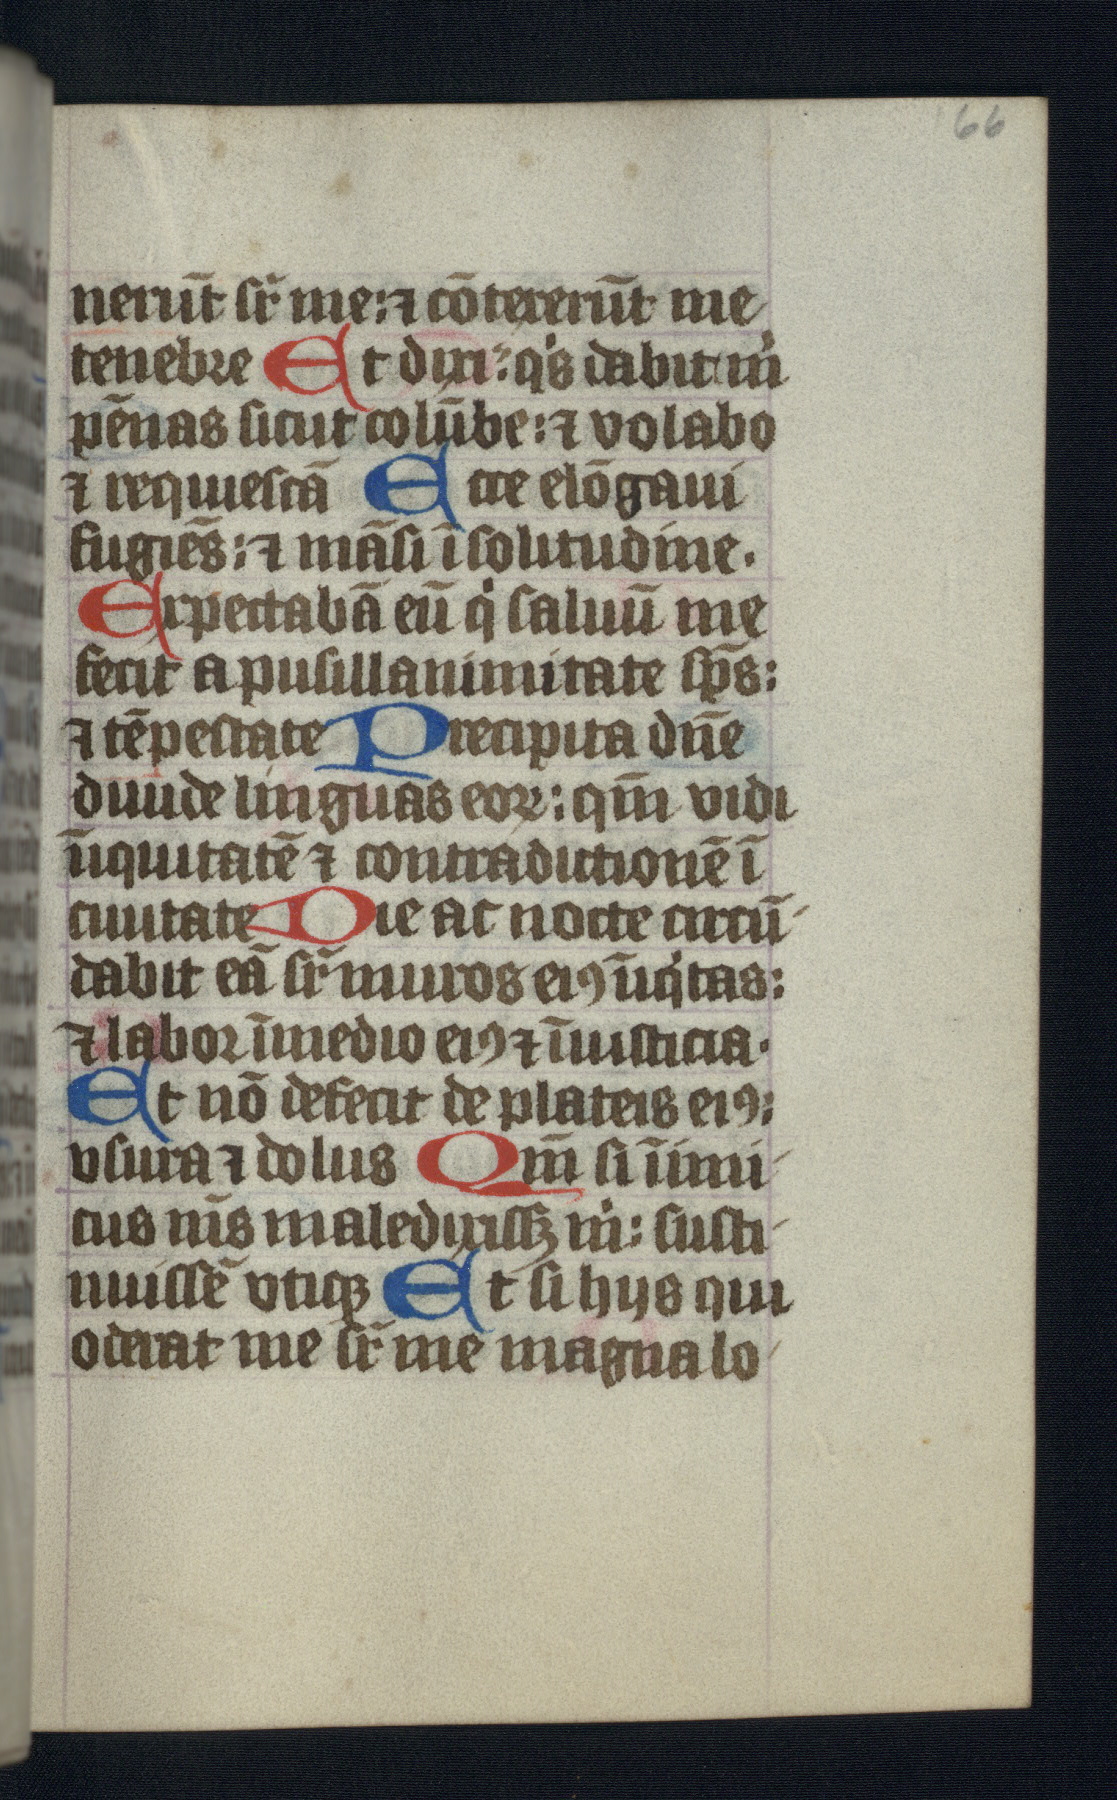 66
nerūt sr̄ me: ⁊ cōtexerūt me
tenebre Et dixi: qͥs dabit mͥ
pēnas sicut colūbe: ⁊ volabo
⁊ requiescā Ecce elōgaui
fugiēs: ⁊ māsi ī solitudine.
Expectabā eū qͥ saluū me
fecit a pusillanimitate sp̄s:
⁊ tēpestate Precipita dn̄e
diuide linguas eoꝝ: qm̄ vidi
īiquitatē ⁊ contradictionē ī
ciuitate Die ac nocte circū-
dabit eā sr̄ muros eiꝰ īiqͥtas:
⁊ labor ī medio eiꝰ ⁊ īiusticia.
Et nō defecit de plateis eiꝰ:
vsura ⁊ dolus Qm̄ si īimi-
cus m̄s maledixissꝫ mͥ: susti-
nuissē vtiqꝫ Et si hijs qui
oderat me sr̄ me magna lo-